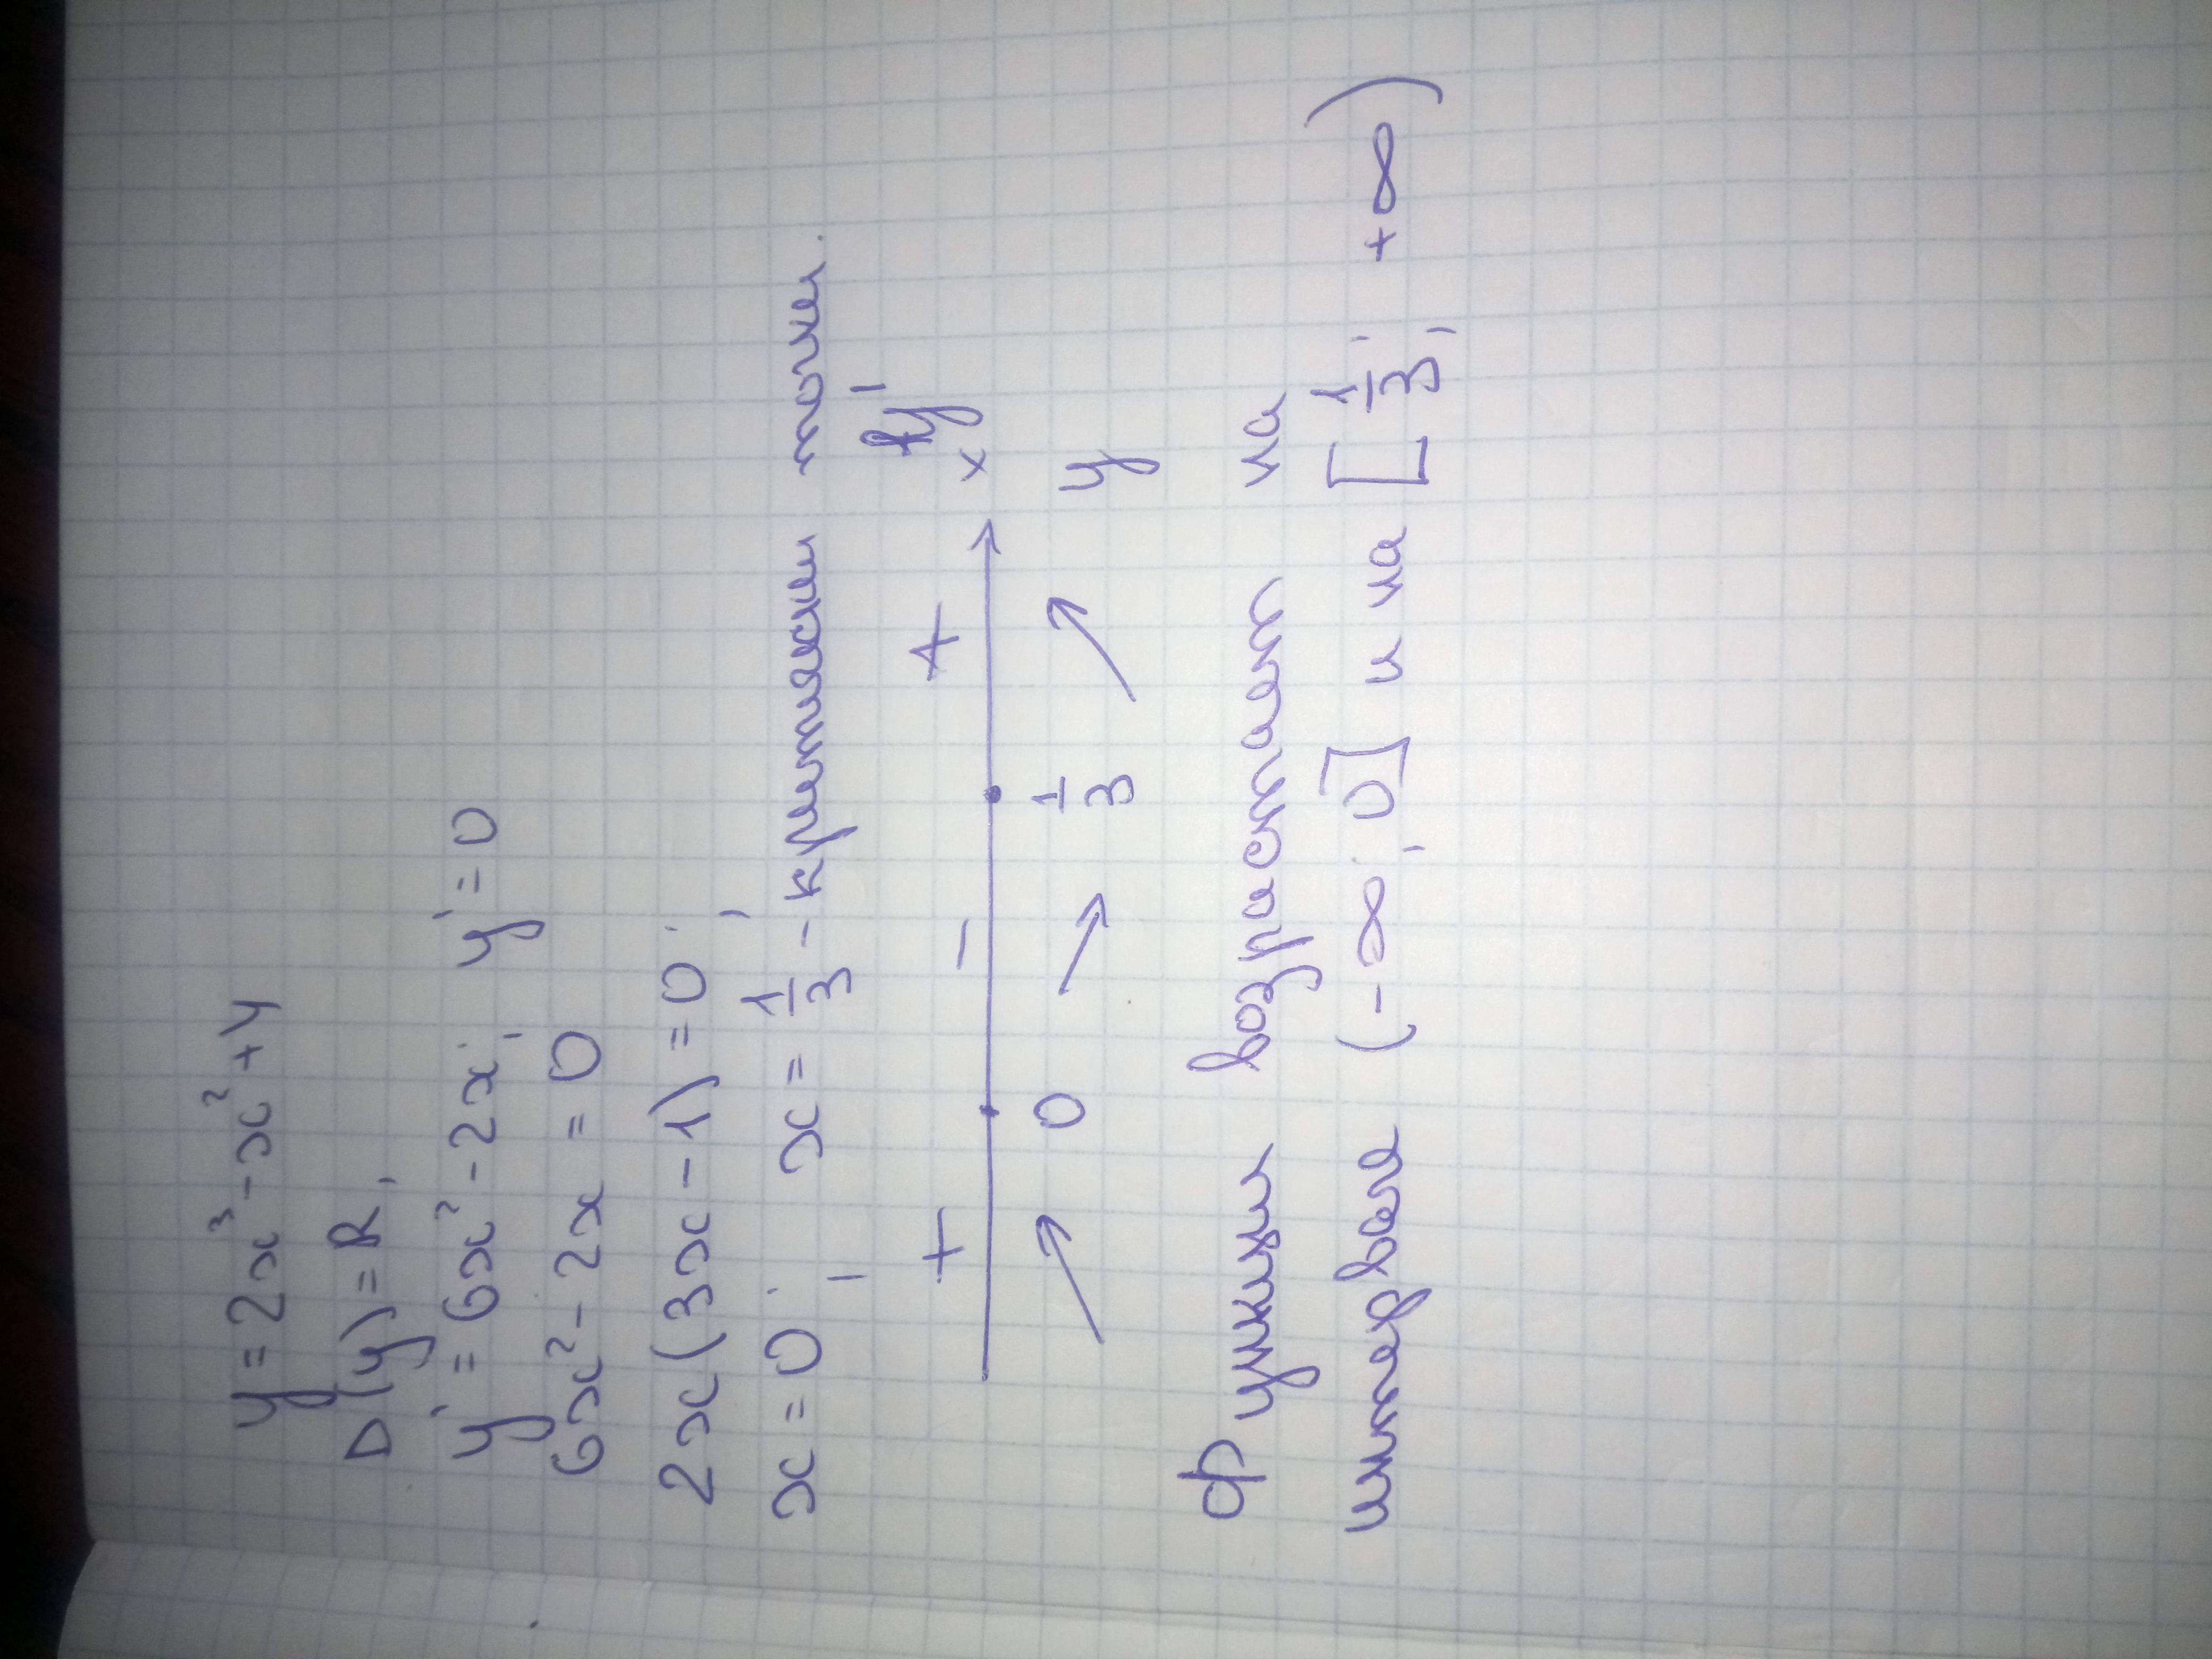 y = 2x³ - x² + 4
D(y) = R,
y' = 6x² - 2x; y' = 0
6x² - 2x = 0
2x(3x - 1) = 0;
x = 0; x = 1/3 - критически точки.
+ - + x y'
0 1/3 y
Функция возрастает на
интервале (-∞; 0] и на [1/3; +∞)